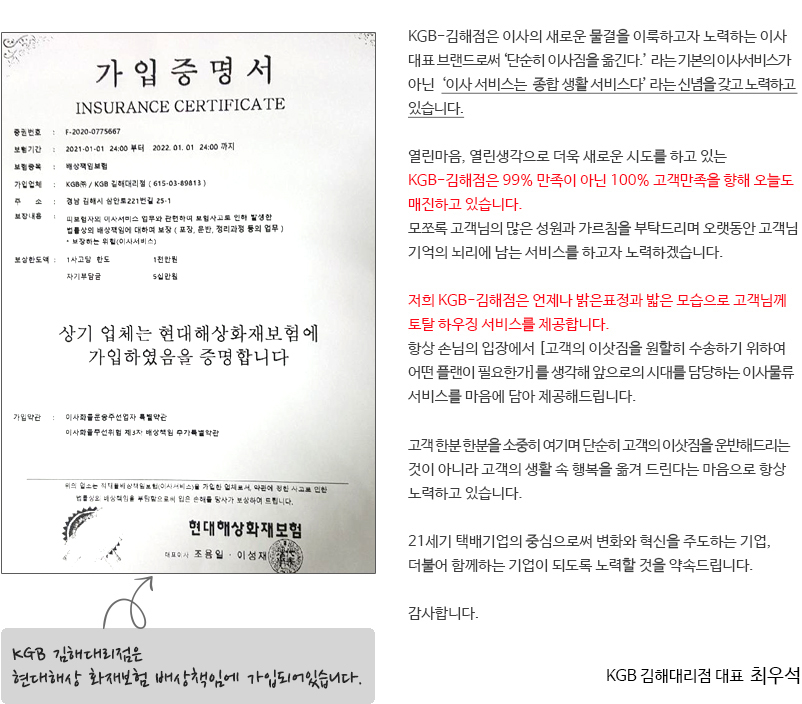 가입증명서
INSURANCE CERTIFICATE
증권번호 : F-2020-0775667
보험기간 : 2021-01-01 24:00 부터 2022. 01. 01 24:00 까지
보험종목 : 배상책임보험
가입업체 : KGB㈜ / KGB 김해대리점 ( 615-03-89813 )
주 소 : 경남 김해시 삼안로221번길 25-1
보장내용 : 피보험자의 이사서비스 업무와 관련하여 보험사고로 인해 발생한
법률상의 배상책임에 대하여 보장 ( 포장, 운반, 정리과정 등의 업무 )
* 보장하는 위험(이사서비스)
보상한도액 : 1사고당 한도 1천만원
자기부담금 5십만원
상기 업체는 현대해상화재보험에
가입하였음을 증명합니다
가입약관 : 이사화물운송주선업자 특별약관
이사화물주선위험 제3자 배상책임 추가특별약관
위의 업소는 적재물배상책임보험(이사서비스)을 가입한 업체로서, 약관에 정한 사고로 인한
법률상의 배상책임을 부담함으로써 입은 손해를 당사가 보상하여 드립니다.
현대해상화재보험
대표이사 조용일 · 이성재
KGB 김해대리점은
현대해상 화재보험 배상책임에 가입되어있습니다.
KGB-김해점은 이사의 새로운 물결을 이룩하고자 노력하는 이사
대표 브랜드로써 ‘단순히 이사짐을 옮긴다.’ 라는 기본의 이사서비스가
아닌 ‘이사 서비스는 종합 생활 서비스다’ 라는 신념을 갖고 노력하고
있습니다.
열린마음, 열린생각으로 더욱 새로운 시도를 하고 있는
KGB-김해점은 99% 만족이 아닌 100% 고객만족을 향해 오늘도
매진하고 있습니다.
모쪼록 고객님의 많은 성원과 가르침을 부탁드리며 오랫동안 고객님
기억의 뇌리에 남는 서비스를 하고자 노력하겠습니다.
저희 KGB-김해점은 언제나 밝은표정과 밟은 모습으로 고객님께
토탈 하우징 서비스를 제공합니다.
항상 손님의 입장에서 [고객의 이삿짐을 원할히 수송하기 위하여
어떤 플랜이 필요한가]를 생각해 앞으로의 시대를 담당하는 이사물류
서비스를 마음에 담아 제공해드립니다.
고객 한분 한분을 소중히 여기며 단순히 고객의 이삿짐을 운반해드리는
것이 아니라 고객의 생활 속 행복을 옮겨 드린다는 마음으로 항상
노력하고 있습니다.
21세기 택배기업의 중심으로써 변화와 혁신을 주도하는 기업,
더불어 함께하는 기업이 되도록 노력할 것을 약속드립니다.
감사합니다.
KGB 김해대리점 대표 최우석